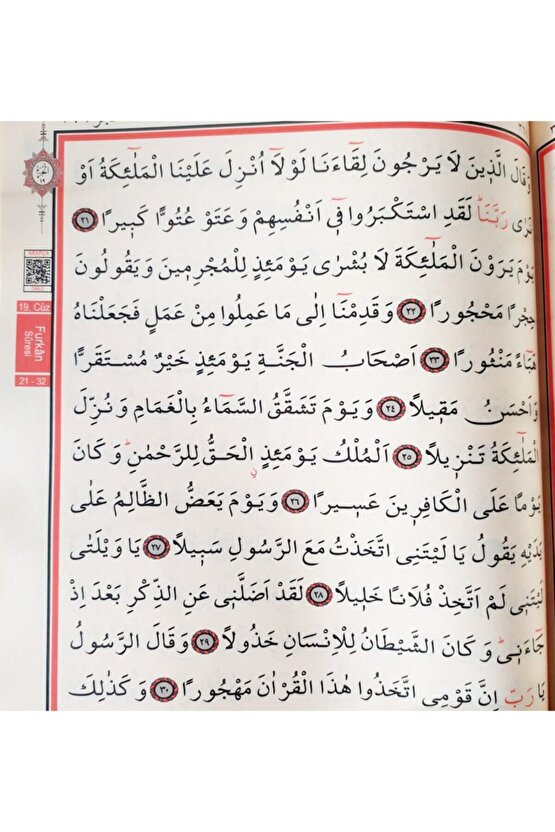 وَقَالَ الَّذ۪ينَ لَا يَرْجُونَ لِقَٓاءَنَا لَوْلَٓا اُنْزِلَ عَلَيْنَا الْمَلٰٓئِكَةُ اَوْ
نَرٰى رَبَّنَاۜ لَقَدِ اسْتَكْبَرُوا ف۪ٓي اَنْفُسِهِمْ وَعَتَوْ عُتُوًّا كَب۪يرًا ﴿٢١﴾
يَوْمَ يَرَوْنَ الْمَلٰٓئِكَةَ لَا بُشْرٰى يَوْمَئِذٍ لِلْمُجْرِم۪ينَ وَيَقُولُونَ
حِجْرًا مَحْجُورًا ﴿٢٢﴾ وَقَدِمْنَٓا اِلٰى مَا عَمِلُوا مِنْ عَمَلٍ فَجَعَلْنَاهُ
هَبَٓاءً مَنْثُورًا ﴿٢٣﴾ اَصْحَابُ الْجَنَّةِ يَوْمَئِذٍ خَيْرٌ مُسْتَقَرًّا
وَاَحْسَنُ مَق۪يلًا ﴿٢٤﴾ وَيَوْمَ تَشَقَّقُ السَّمَٓاءُ بِالْغَمَامِ وَنُزِّلَ
الْمَلٰٓئِكَةُ تَنْز۪يلًا ﴿٢٥﴾ اَلْمُلْكُ يَوْمَئِذٍ الْحَقُّ لِلرَّحْمٰنِۜ وَكَانَ
يَوْمًا عَلَى الْكَافِر۪ينَ عَس۪يرًا ﴿٢٦﴾ وَيَوْمَ يَعَضُّ الظَّالِمُ عَلٰى
يَدَيْهِ يَقُولُ يَا لَيْتَنِي اتَّخَذْتُ مَعَ الرَّسُولِ سَب۪يلًا ﴿٢٧﴾ يَا وَيْلَتٰى
لَيْتَن۪ي لَمْ اَتَّخِذْ فُلَانًا خَل۪يلًا ﴿٢٨﴾ لَقَدْ اَضَلَّن۪ي عَنِ الذِّكْرِ بَعْدَ اِذْ
جَٓاءَن۪يۜ وَكَانَ الشَّيْطَانُ لِلْاِنْسَانِ خَذُولًا ﴿٢٩﴾ وَقَالَ الرَّسُولُ
يَا رَبِّ اِنَّ قَوْمِي اتَّخَذُوا هٰذَا الْقُرْاٰنَ مَهْجُورًا ﴿٣٠﴾ وَكَذٰلِكَ
19. Cüz
Furkân
Sûresi
21 - 32